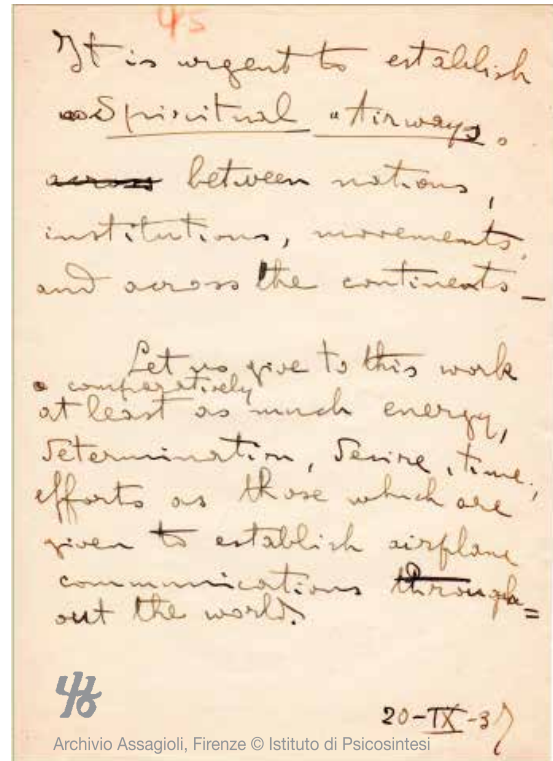 45
It is urgent to establish
"Spiritual "Airways".
across between nations,
institutions, movements,
and across the continents_
Let us give to this work
comparatively
at least as much energy,
determination, desire, time,
efforts as those which are
given to establish airplane
communications through=
out the world.
20-IX-37
Archivio Assagioli, Firenze © Istituto di Psicosintesi